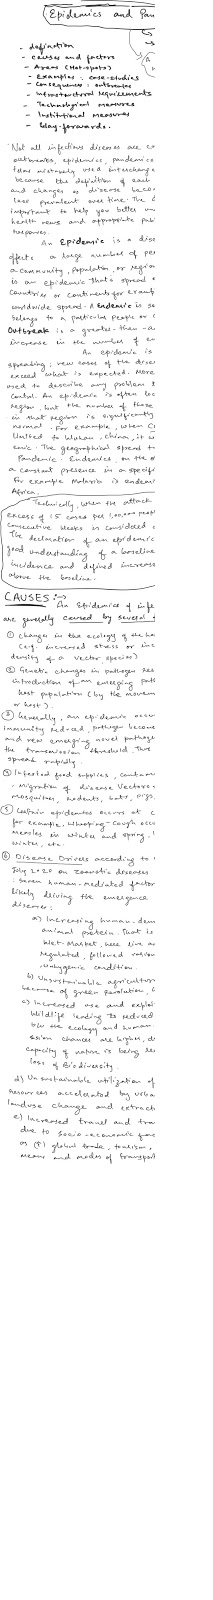 Epidemics and Pan
- definition
- causes and factors
- Areas (Hot-spots)
- Examples : case-studies
- Consequence : outbreaks
- Infrastructural requirements
- Technological measures
- Institutional measures
- Way-forwards.
Not all infectious diseases are
outbreaks, epidemics, pandemics
terms mistakenly used interchange
because the definition of each
and changes as disease beco
less prevalent over time. The
important to help you better un
health news and appropriate pub
responses.
An Epidemic is a dise
affects a large number of per
a community, population, or region
is an epidemic that's spread
countries or continents for exampl
worldwide spread. A Endemic is so
belongs to a particular people or
Outbreak is a greater-than-a
increase in the number of en
An epidemic is
speaking, new cases of the disea
exceed what is expected. More
used to describe any problem
control. An epidemic is often loc
region, but the number of those
in that region is significantly
normal. For example, when C
limited to Wuhan, China, it w
emic. The geographical spread t
Pandemic. Endemics on the o
a constant presence in a specific
For example Malaria is endemi
Africa.
Technically, when the attack
excess of 15 cases per 1,00,000 peopl
consecutive weeks is considered
The declaration of an epidemic
good understanding of a baseline
incidence and defined increase
above the baseline.
CAUSES :→
An Epidemics of infe
are generally caused by several
① changes in the ecology of the ho
(e.g. increased stress or inc
density of a vector species)
② Genetic changes in pathogen Res
introduction of an emerging path
host population (by the movem
or host).
③ Generally, an epidemic occur
immunity reduced, pathogen become
and new emerging novel pathoge
the transmission threshold. Thus
spreads rapidly.
④ Infected food supplies, contam
- Migration of disease Vectors
mosquitoes, rodents, bats, pigs,
⑤ Certain epidemics occurs at c
for example, Whooping-Cough occu
Measles in winter and spring,
winter, etc.
⑥ Disease Drivers according to
July 2020 on zoonotic diseases
seven human-mediated factor
likely driving the emergence
diseases:
a) Increasing human dem
animal protein. That is
Wet-Market, here live a
regulated, followed various
unhygienic condition.
b) Unsustainable agricultur
because of green revolution,
c) Increased use and exploi
Wildlife leading to reduced
in the ecology and human
ssion chances are higher, d
capacity of nature is being res
loss of Biodiversity.
d) Unsustainable utilization of
resources accelerated by urba
landuse change and extracti
e) Increased travel and tra
due to socio-economic func
as (↑) global trade, tourism,
means and modes of transport